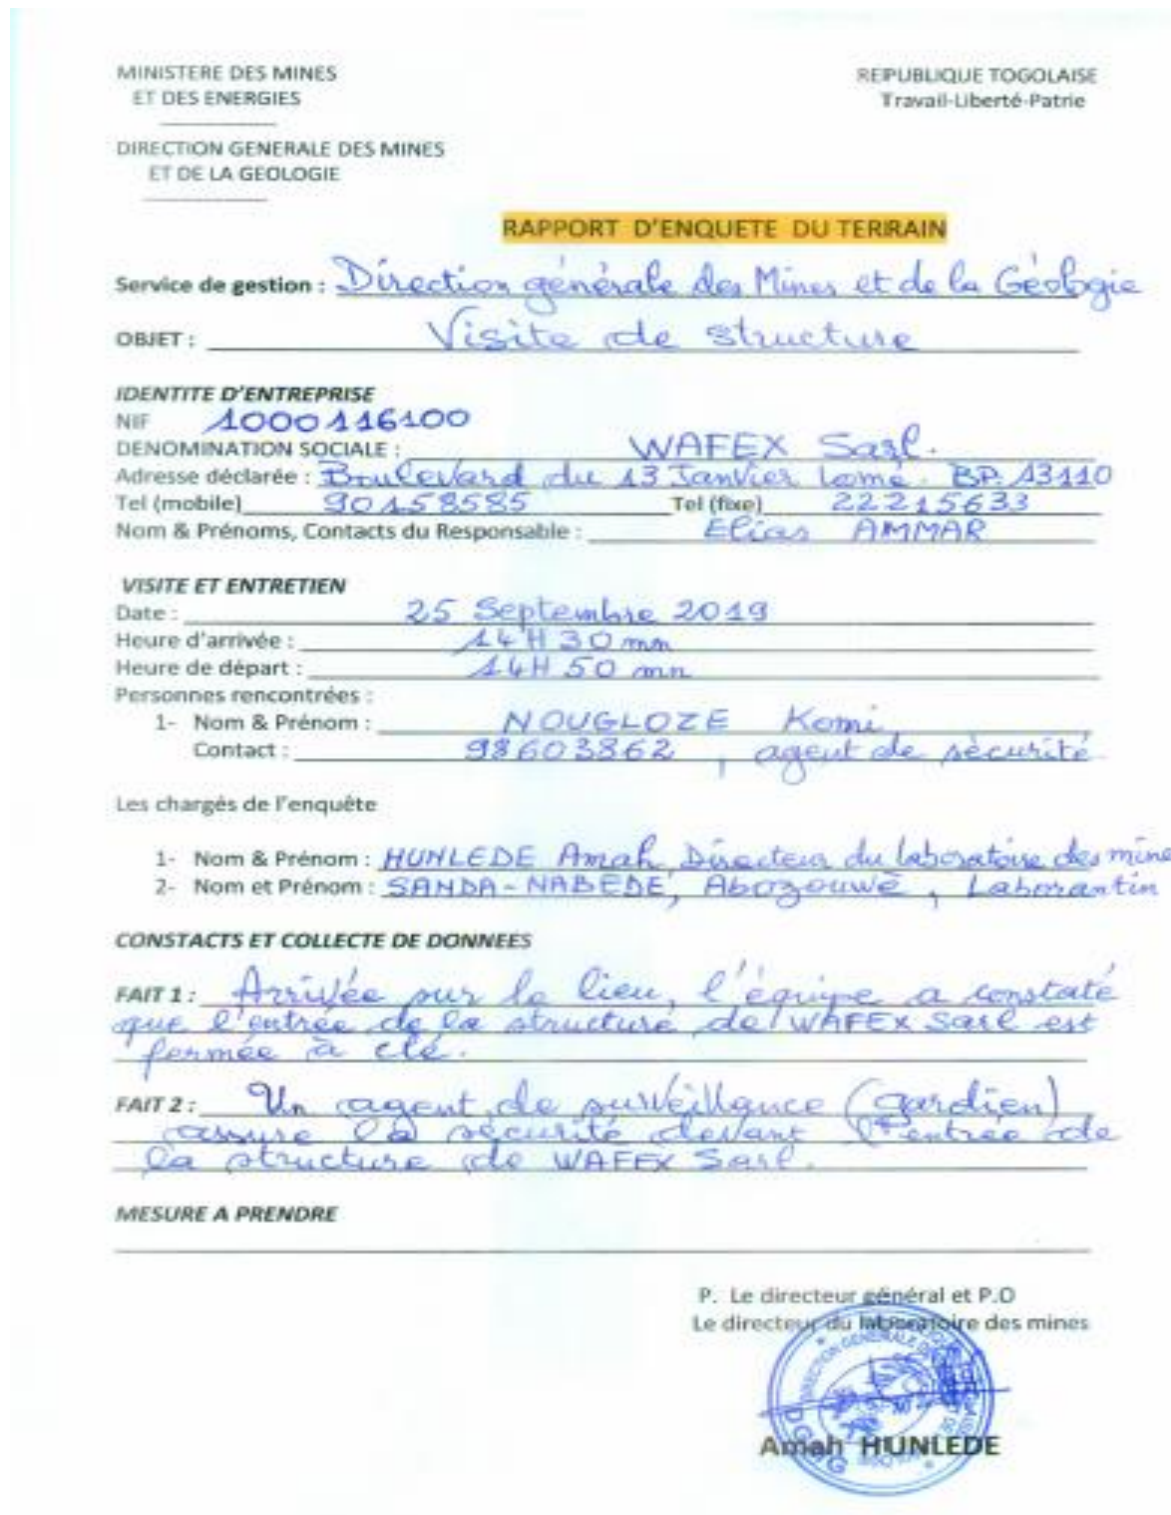 MINISTERE DES MINES
ET DES ENERGIES
REPUBLIQUE TOGOLAISE
Travail-Liberté-Patrie
DIRECTION GENERALE DES MINES
ET DE LA GEOLOGIE
RAPPORT D'ENQUETE DU TERRAIN
Service de gestion : Direction générale des Mines et de la Géologie
OBJET : Visite de structure
IDENTITE D'ENTREPRISE
NIF 1000116100
DENOMINATION SOCIALE : WAFEX Sarl.
Adresse déclarée : Boulevard du 13 Janvier Lomé. BP. 13110
Tel (mobile) 90158585 Tel (fixe) 22215633
Nom & Prénoms, Contacts du Responsable : Elias AMMAR
VISITE ET ENTRETIEN
Date : 25 Septembre 2019
Heure d'arrivée : 14H 30 mn
Heure de départ : 14H 50 mn
Personnes rencontrées :
1- Nom & Prénom : NOUGLOZE Komi
Contact : 98603862, agent de sécurité
Les chargés de l'enquête
1- Nom & Prénom : HUNLEDE Amah, Directeur du laboratoire des mine
2- Nom et Prénom : SANDA-NABEDE, Abozouwè, Laborantin
CONSTACTS ET COLLECTE DE DONNEES
FAIT 1 : Arrivée sur le lieu, l'équipe a constaté
que l'entrée de la structure de WAFEX Sarl est
fermée à clé.
FAIT 2 : Un agent de surveillance (gardien)
assure la sécurité devant l'entrée de
la structure de WAFEX Sarl.
MESURE A PRENDRE
P. Le directeur général et P.O
Le directeur du laboratoire des mines
DIRECTION GENERALE
DGMG
Amah HUNLEDE